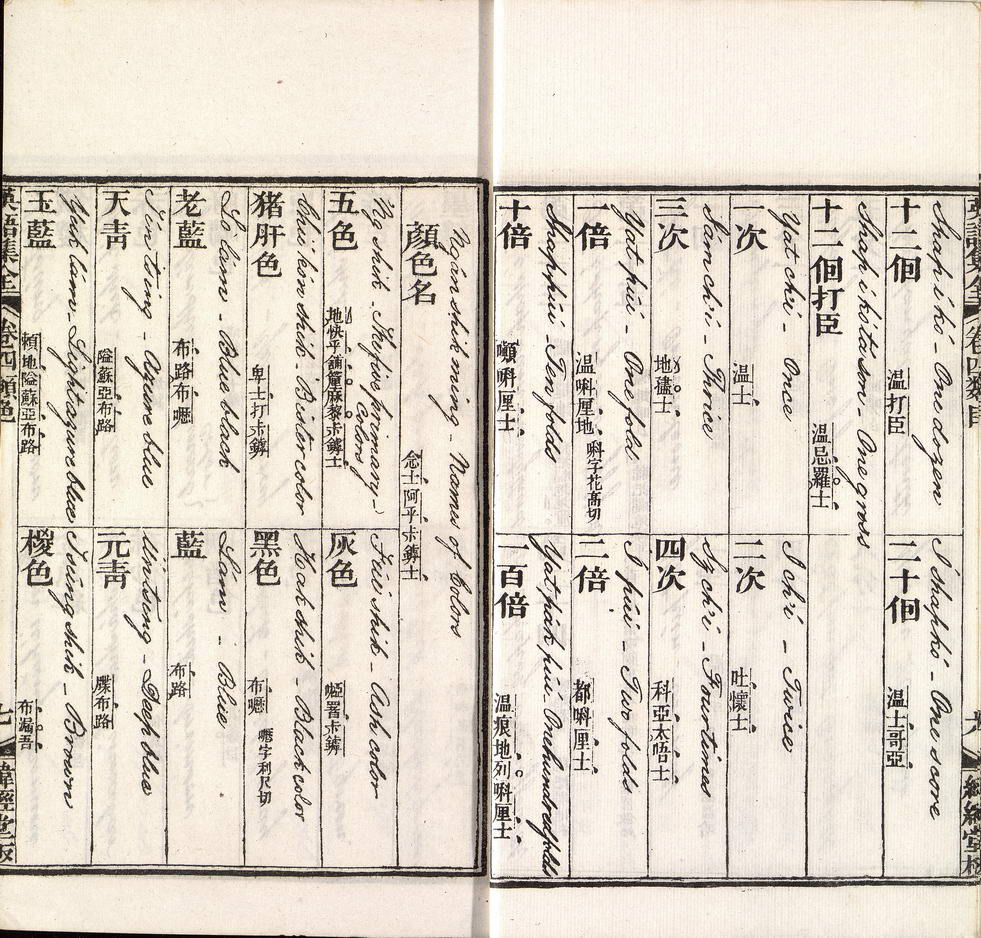 十二個
Shap í kó - One dozen
温打臣
二十個
Í shap kó - One score
温士哥亞
十二個打臣
Shap í kó tá son - One gross
温忌羅士
一次
Yat ch'í - Once
温士
二次
Í ch'í - Twice
吐懷士
三次
Sám ch'í - Thrice
地孻士
四次
Sz ch'í - Four times
科亞太唔士
一倍
Yat púí - One fold
温㖠厘地
㖠字花高切
二倍
Í púí - Two folds
都㖠厘士
十倍
Shap púí - Ten folds
一百倍
Yat pák púí - One hundred folds
温痕地列㖠厘士
顔色名
Ngán shik ming - Names of Colors
念士阿乎卡罅士
五色
Ng shik - The five primary Colors
灰色
Fúí shik - Ash color
啞署卡罅
猪肝色
Chü kón shik - Bister color
卑士打卡罅
黑色
Hak shik - Black color
布嚦
嚦字利尺切
老藍
Lo lam - Blue black
布路布嚦
藍
Lám - Blue
布路
天青
Tín tsing - Azure blue
隘蘇亞布路
元青
Ün tsing - Deep blue
牒布路
玉藍
Yuk lám - Light azure blue
頼地隘蘇亞布路
椶色
Tsúng shik - Brown
布漏吾
卷四顔色
七
緯經堂板